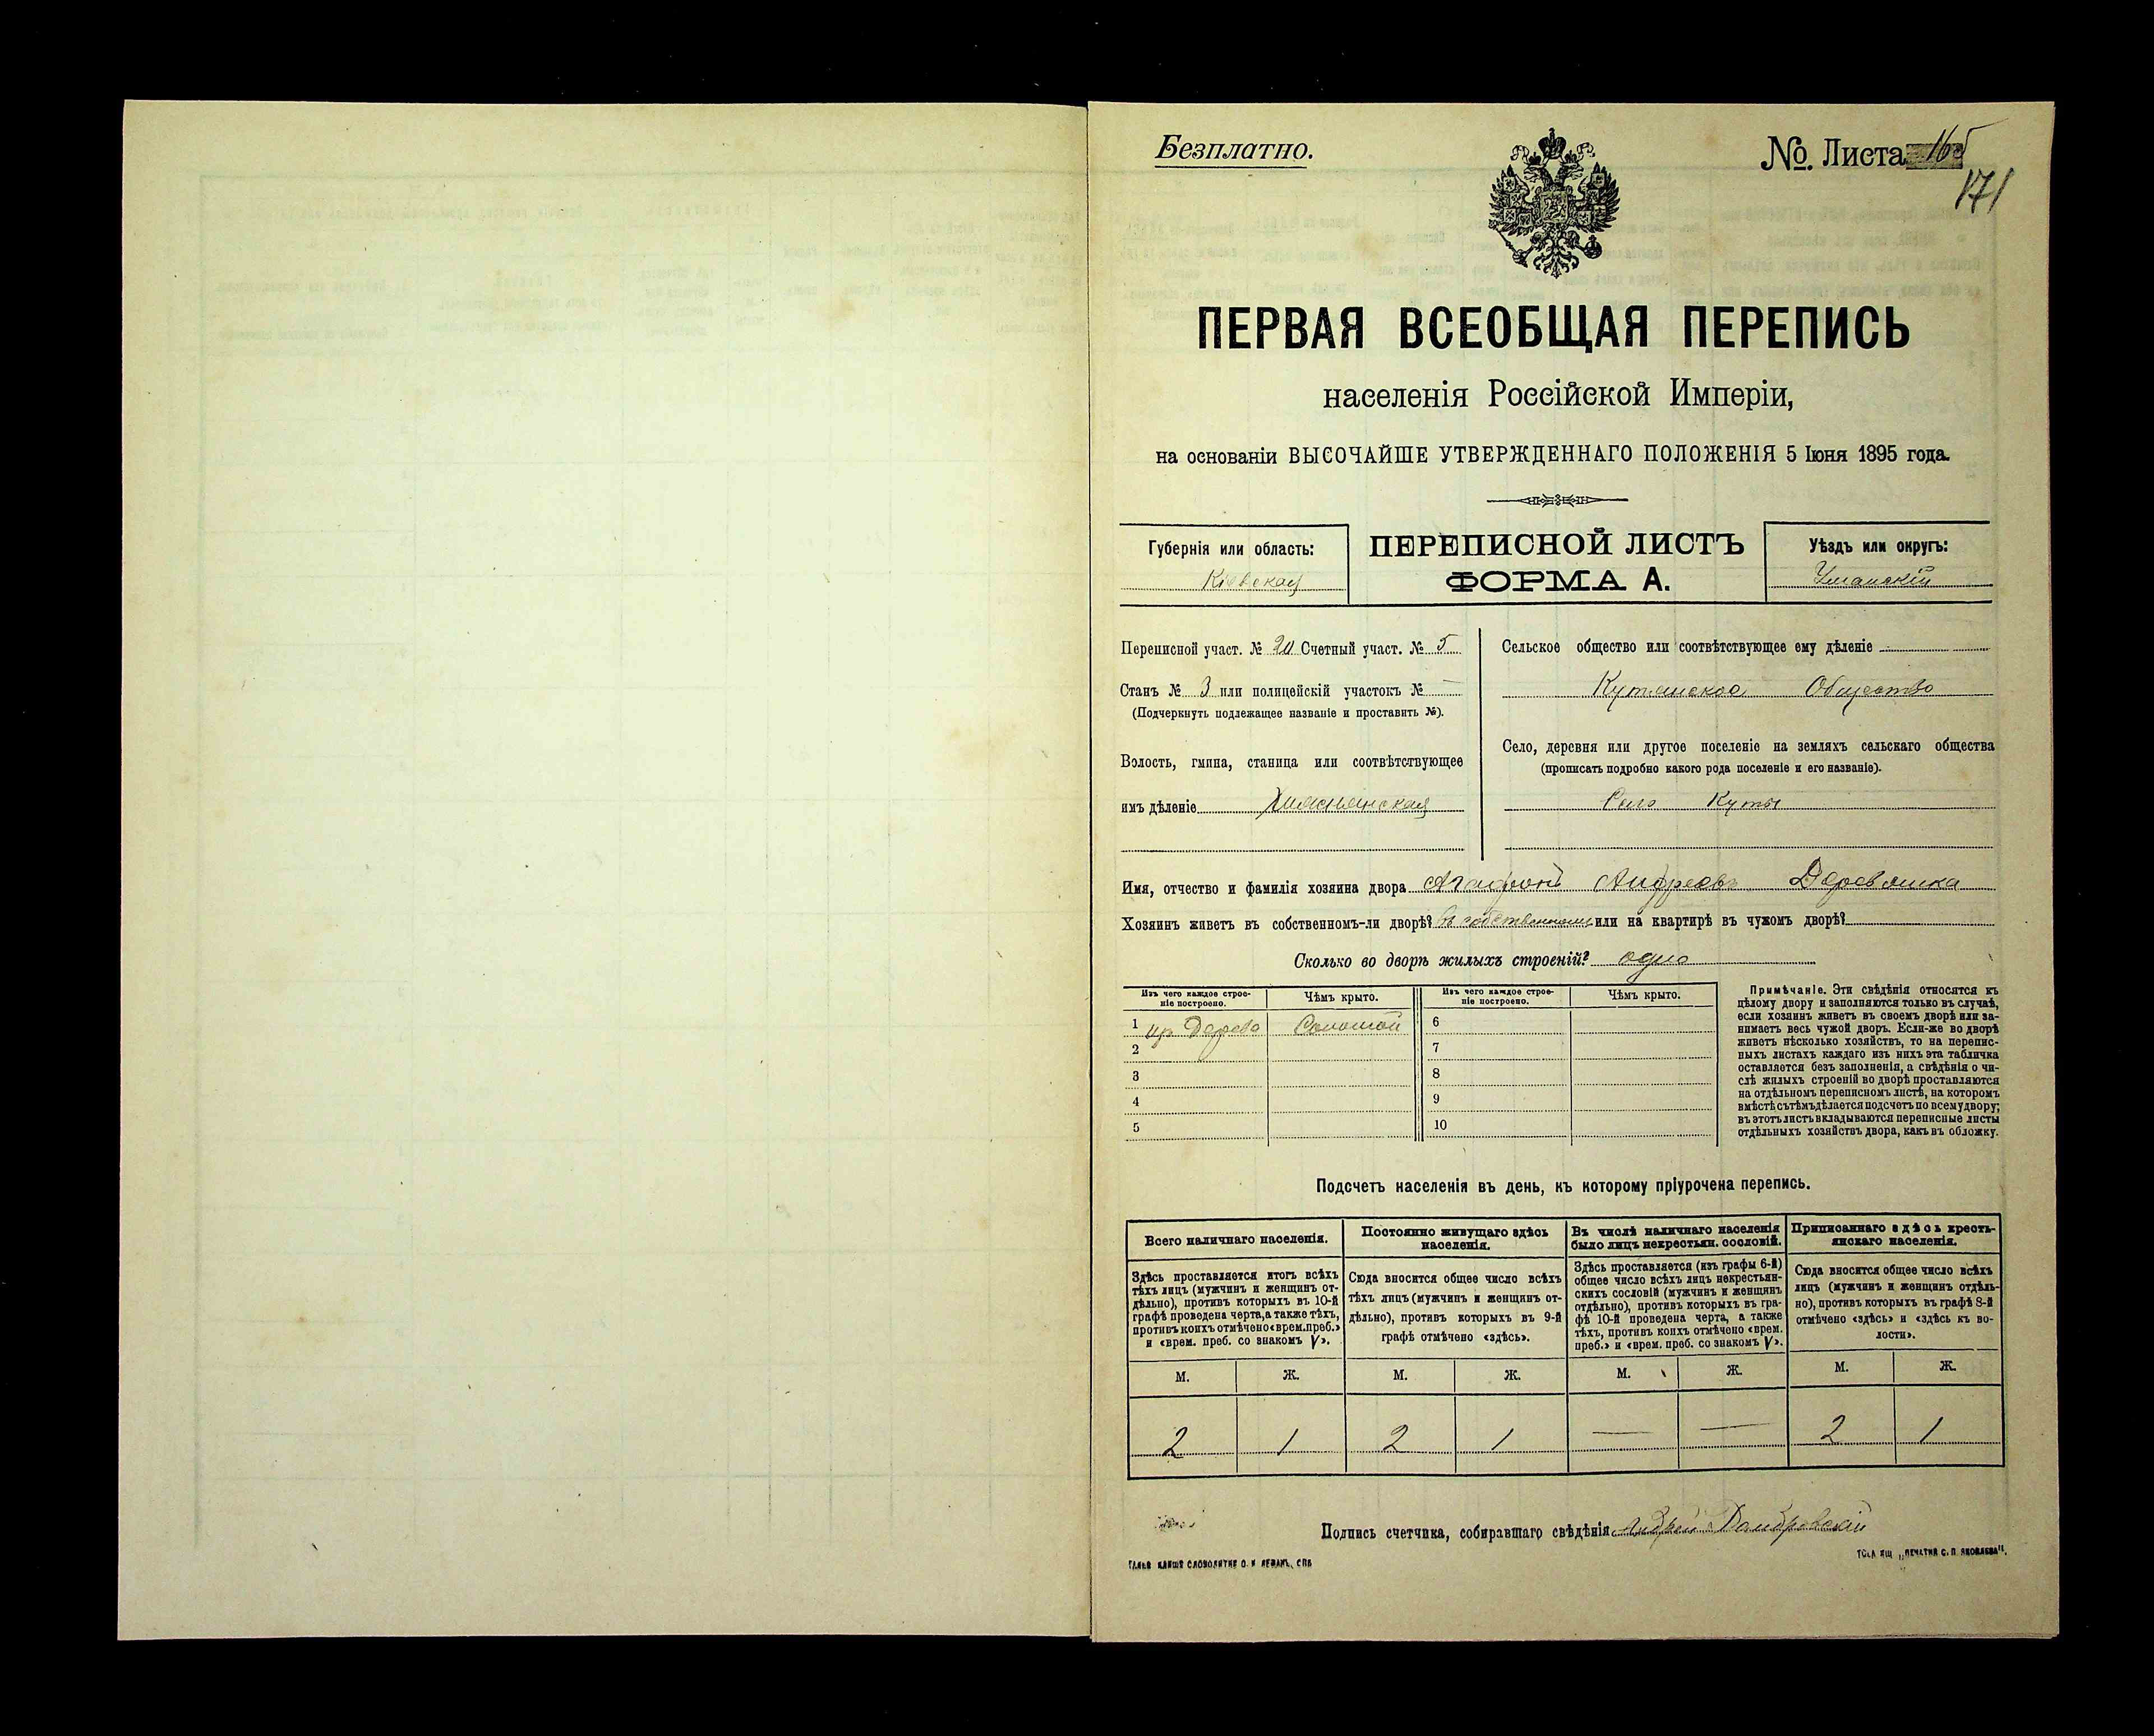 Безплатно.
№ Листа 165
171
ПЕРВАЯ ВСЕОБЩАЯ ПЕРЕПИСЬ
населенія Россійской Имперіи,
на основаніи ВЫСОЧАЙШЕ УТВЕРЖДЕННАГО ПОЛОЖЕНІЯ 5 Іюня 1895 года.
Губернія или область:
Кіевская
ПЕРЕПИСНОЙ ЛИСТЪ
ФОРМА А.
Уѣздъ или округъ:
Уманскій
Переписной участ. № 20 Счетный участ. № 5
Станъ № 3 или полицейскій участокъ № —
(Подчеркнуть подлежащее названіе и проставить №).
Волость, гмина, станица или соотвѣтствующее
имъ дѣленіе
Сельское общество или соотвѣтствующее ему дѣленіе
Кутянское Общество
Село, деревня или другое поселеніе на земляхъ сельскаго общества
(прописать подробно какого рода поселеніе и его названіе).
Село Куты
Имя, отчество и фамилія хозяина двора Агафонъ Андреевъ Деревянка
Хозяинъ живетъ въ собственномъ-ли дворѣ? въ собственномъ или на квартирѣ въ чужомъ дворѣ?
Сколько во дворѣ жилыхъ строеній? одно
Изъ чего каждое строеніе построено.
Чѣмъ крыто.
Изъ чего каждое строеніе построено.
Чѣмъ крыто.
1 из Дерева Соломой 6
2 7
3 8
4 9
5 10
Примѣчаніе. Эти свѣдѣнія относятся къ
цѣлому двору и заполняются только въ случаѣ,
если хозяинъ живетъ въ своемъ дворѣ или за-
нимаетъ весь чужой дворъ. Если-же во дворѣ
живетъ нѣсколько хозяйствъ, то на перепис-
ныхъ листахъ каждаго изъ нихъ эта табличка
оставляется безъ заполненія, а свѣдѣнія о чи-
слѣ жилыхъ строеній во дворѣ проставляются
на отдѣльномъ переписномъ листѣ, на которомъ
вмѣстѣ съ тѣмъ дѣлается подсчетъ по всему двору;
въ этотъ листъ вкладываются переписные листы
отдѣльныхъ хозяйствъ двора, какъ въ обложку.
Подсчетъ населенія въ день, къ которому пріурочена перепись.
Всего наличнаго населенія.
Здѣсь проставляется итогъ всѣхъ
тѣхъ лицъ (мужчинъ и женщинъ от-
дѣльно), противъ которыхъ въ 10-й
графѣ проведена черта, а также тѣхъ,
противъ коихъ отмѣчено «врем. преб.»
и «врем. преб. со знакомъ V».
Постоянно живущаго здѣсь
населенія.
Сюда вносится общее число всѣхъ
тѣхъ лицъ (мужчинъ и женщинъ от-
дѣльно), противъ которыхъ въ 9-й
графѣ отмѣчено «здѣсь».
Въ числѣ наличнаго населенія
было лицъ некрестьян. сословій.
Здѣсь проставляется (изъ графы 6-й)
общее число всѣхъ лицъ некрестьян-
скихъ сословій (мужчинъ и женщинъ
отдѣльно), противъ которыхъ въ гра-
фѣ 10-й проведена черта, а также
тѣхъ, противъ коихъ отмѣчено «врем.
преб.» и «врем. преб. со знакомъ V».
Приписаннаго здѣсь кресть-
янскаго населенія.
Сюда вносится общее число всѣхъ
лицъ (мужчинъ и женщинъ отдѣль-
но), противъ которыхъ въ графѣ 8-й
отмѣчено «здѣсь» и «здѣсь къ во-
лости».
М. Ж. М. Ж. М. Ж. М. Ж.
2 1 2 1 — — 2 1
Подпись счетчика, собиравшаго свѣдѣнія Андрей Домбровскій